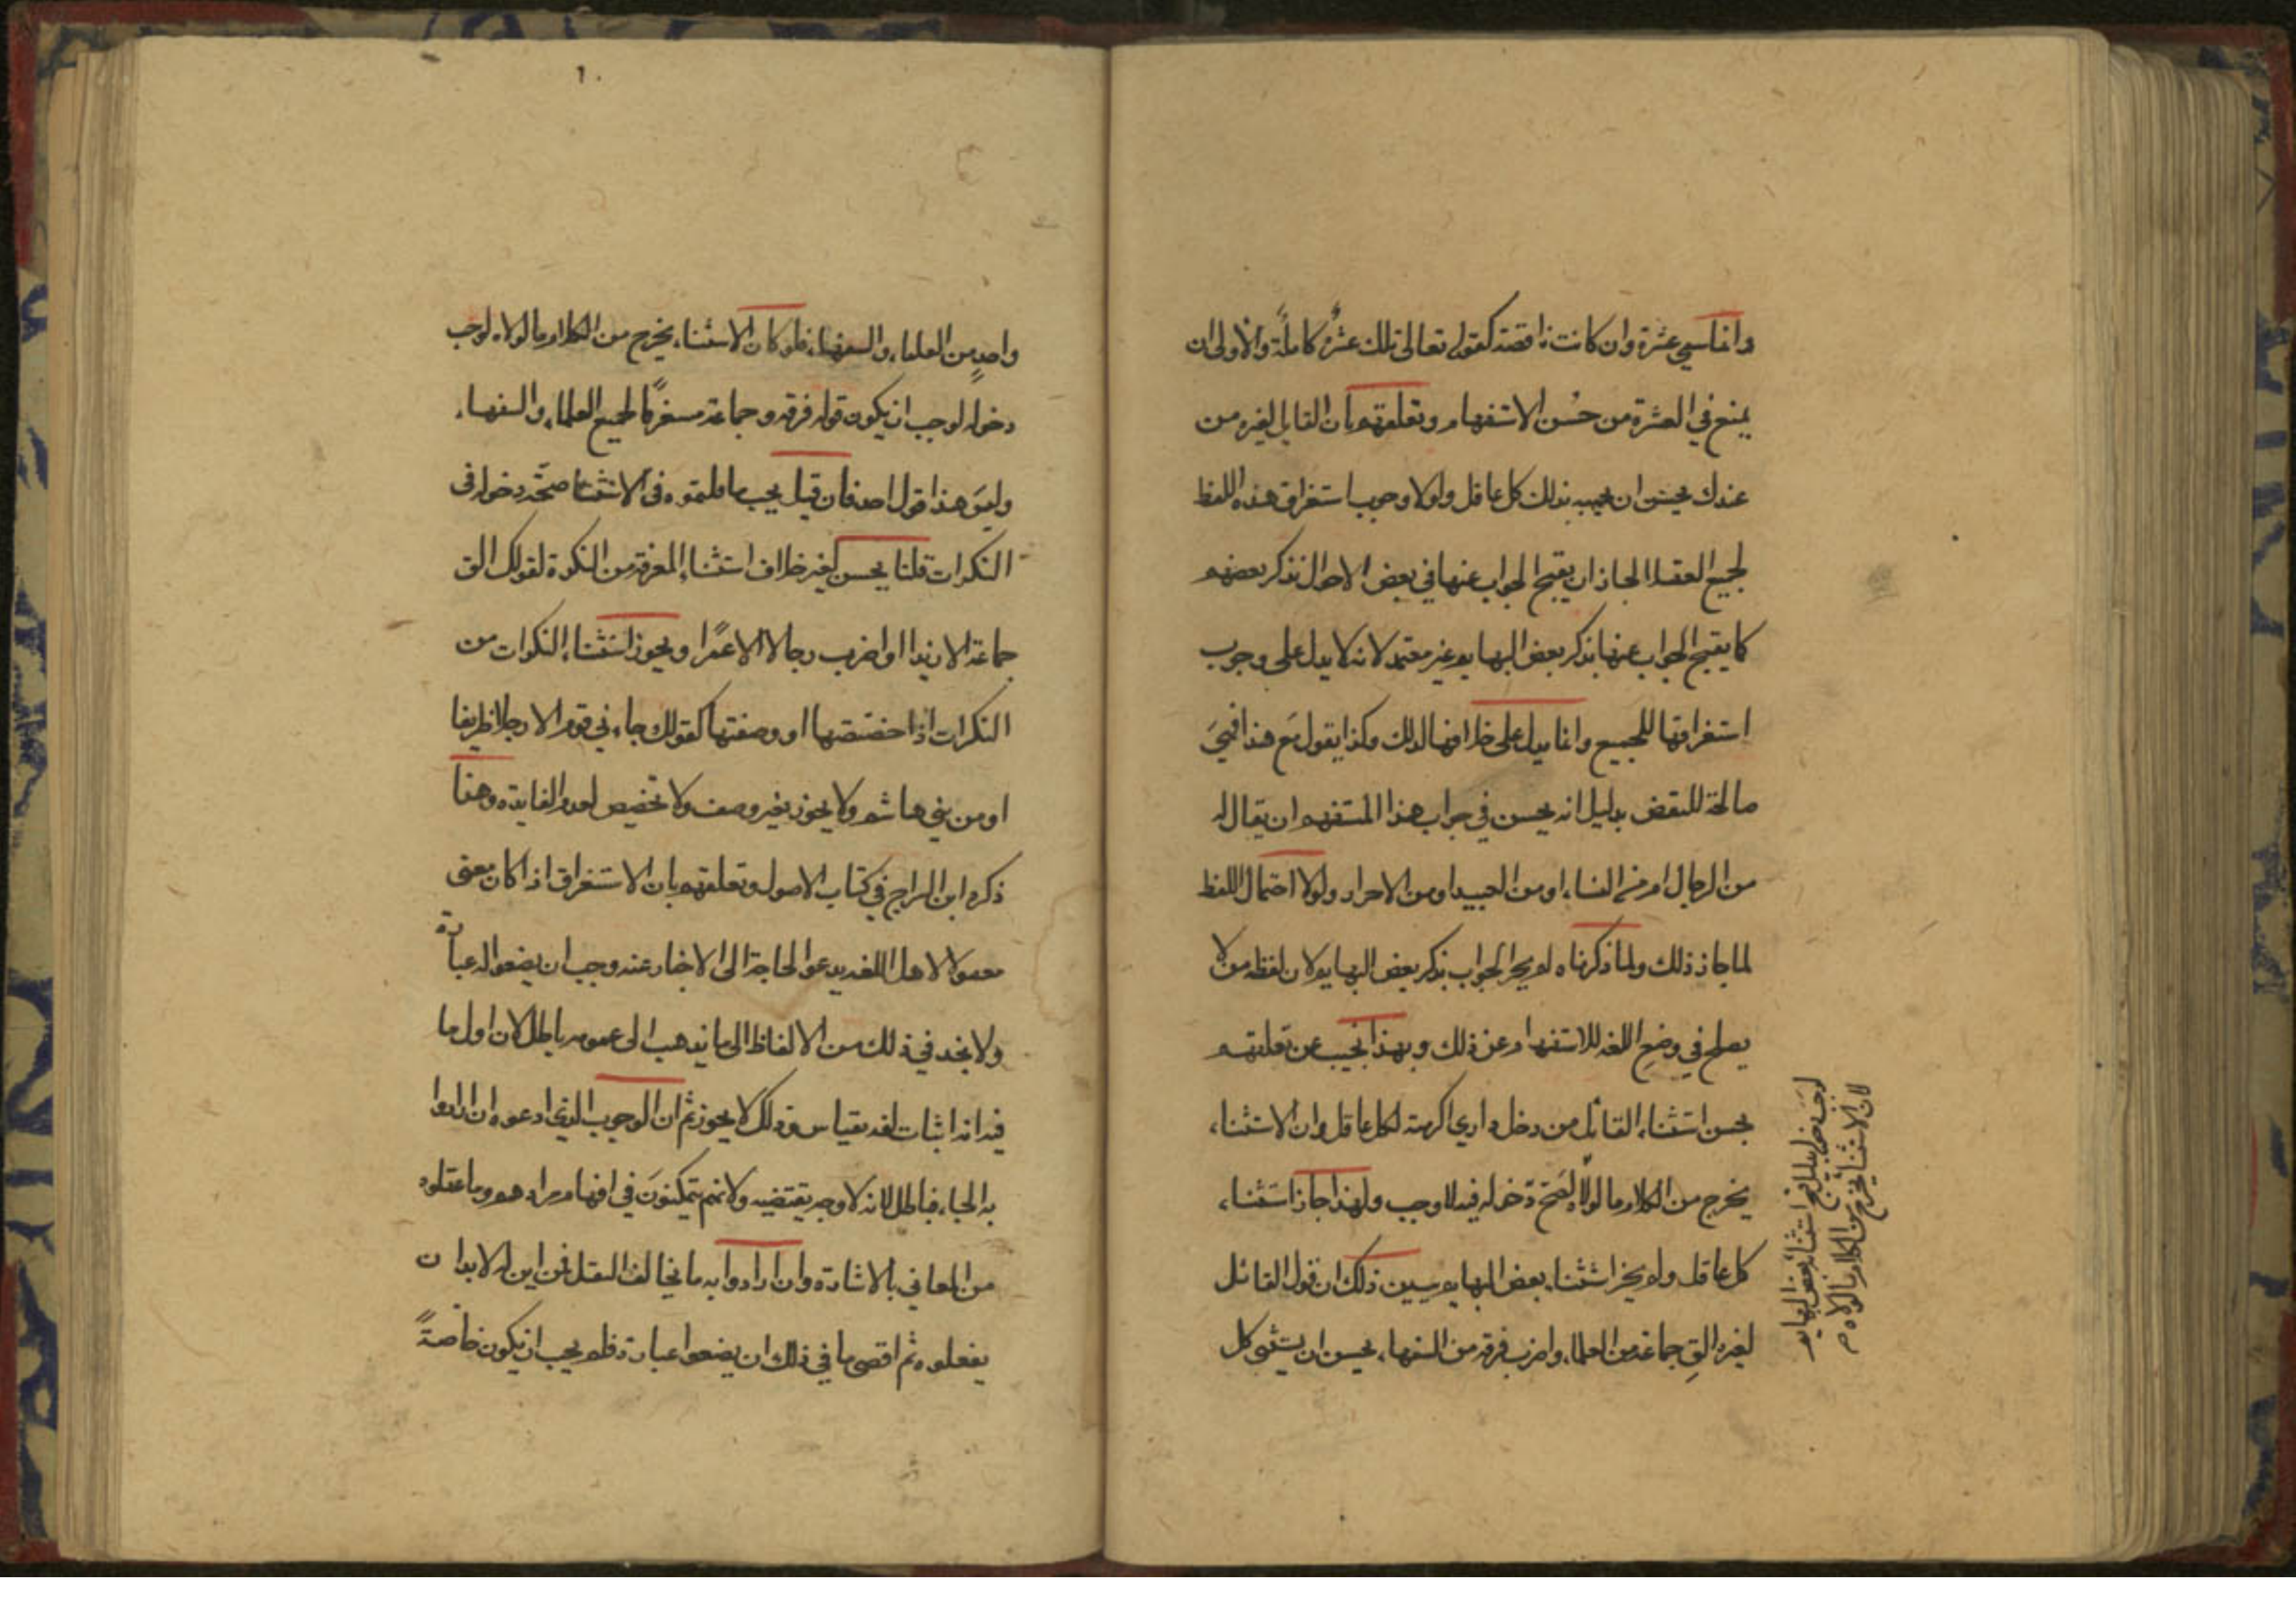 وانما سمى عشرة وان كانت ناقصة كقوله تعالى تلك عشرة كاملة والاولى ان
يمنع في العشرة من حُسن الاستفهام وتعلقهم بان القايل لغيره من
عندك يحسن ان يجيبه بذلك كل عاقل ولولا وجوب استغراق هذه اللفظ
لجميع العقلا لجاز ان يقبح الجواب عنها في بعض الاحوال بذكر بعضهم
كما يقبح الجواب عنها بذكر بعض البهايم غير معتمد لانه لا يدل على وجوب
استغراقها للجميع وانما يدل على صلاحها لذلك وكذا يقول مع هذا فهي
صالحة للبعض بدليل انه يحسن في جواب هذا المستفهم ان يقال له
من الرجال ام من النساء او من العبيد او من الاحرار ولولا احتمال اللفظ
لما جاز ذلك ولما ذكرناه لم يجز الجواب بذكر بعض البهايم لان لفظه من لا
يصلح في وضع اللغه للاستفهام عن ذلك وبهذا نجيب عن تعلقهم
بحسن استثناء القائل من دخل داري اكرمته لكل عاقل وان الاستثناء
يخرج من الكلام ما لولاه لصح دخوله فيه لا وجب ولهذا جاز استثناء
كل عاقل ولم يجز استثناء بعض البهايم يبين ذلك ان قول القائل
لغيره القِ جماعة من العلماء واضرب فرقة من السفهاء يحسن ان يستثنى كل
لان الاستثناء يخرج من الكلام ما لولاه
لوجب دخوله بدليل قبح استثناء بعض البهايم
واحدٍ من العلماء والسفهاء فلو كان الاستثناء يخرج من الكلام ما لولاه لوجب
دخوله لوجب ان يكون قوله فرقه وجماعة مستغرقًا لجميع العلماء والسفهاء
وليس هذا قول احد فان قيل يجب ما قلتموه في الاستثناء صحّة دخوله في
النكرات قلنا يحسن بغير خلاف استثناء المعرفة من النكرة كقولك الق
جماعة الا زيدا او اضرب رجالا الا عمرًا ويجوز استثناء النكرات من
النكرات اذا خصصتها او وصفتها كقولك جاءني قوم الا رجلا ظريفا
او من بني هاشم ولا يجوز بغير وصف ولا تخصيص لعدم الفايدة وهذا
ذكره ابن السراج في كتاب الاصول وتعلقهم بان الاستغراق اذا كان معنى
معقولا لاهل اللغة يدعو الحاجة الى الاخبار عنه وجب ان يضعوا له عبارة
ولا نجد في ذلك من الالفاظ الى ما يذهب الى عمومه باطل لان اول ما
فيه انه اثبات لغة بقياس وذلك لا يجوز ثم ان الوجوب الذي ادعوه ان ارادوا
به الجاء فباطل لانه لا وجه يقتضيه ولانهم يتمكنون في افهام مرادهم وما عقلوه
من المعاني بالاشارة وان ارادوا به ما يخالف العقل فمن اين له لا بد ان
يفعلوه ثم اقصى ما في ذلك ان يضعوا عبارة فلم يجب ان يكون خاصةً